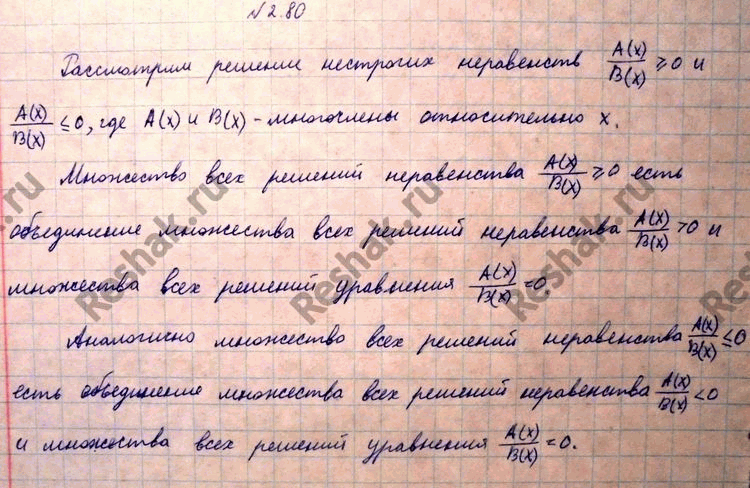 №2.80
Рассмотрим решение нестрогих неравенств A(x)/B(x) ≥ 0 и
A(x)/B(x) ≤ 0, где A(x) и B(x) - многочлены относительно x.
Множество всех решений неравенства A(x)/B(x) ≥ 0 есть
объединение множества всех решений неравенства A(x)/B(x) > 0 и
множества всех решений уравнения A(x)/B(x) = 0.
Аналогично множество всех решений неравенства A(x)/B(x) ≤ 0
есть объединение множества всех решений неравенства A(x)/B(x) < 0
и множества всех решений уравнения A(x)/B(x) = 0.
Reshak.ru
Reshak.ru
Reshak.ru
Reshak.ru